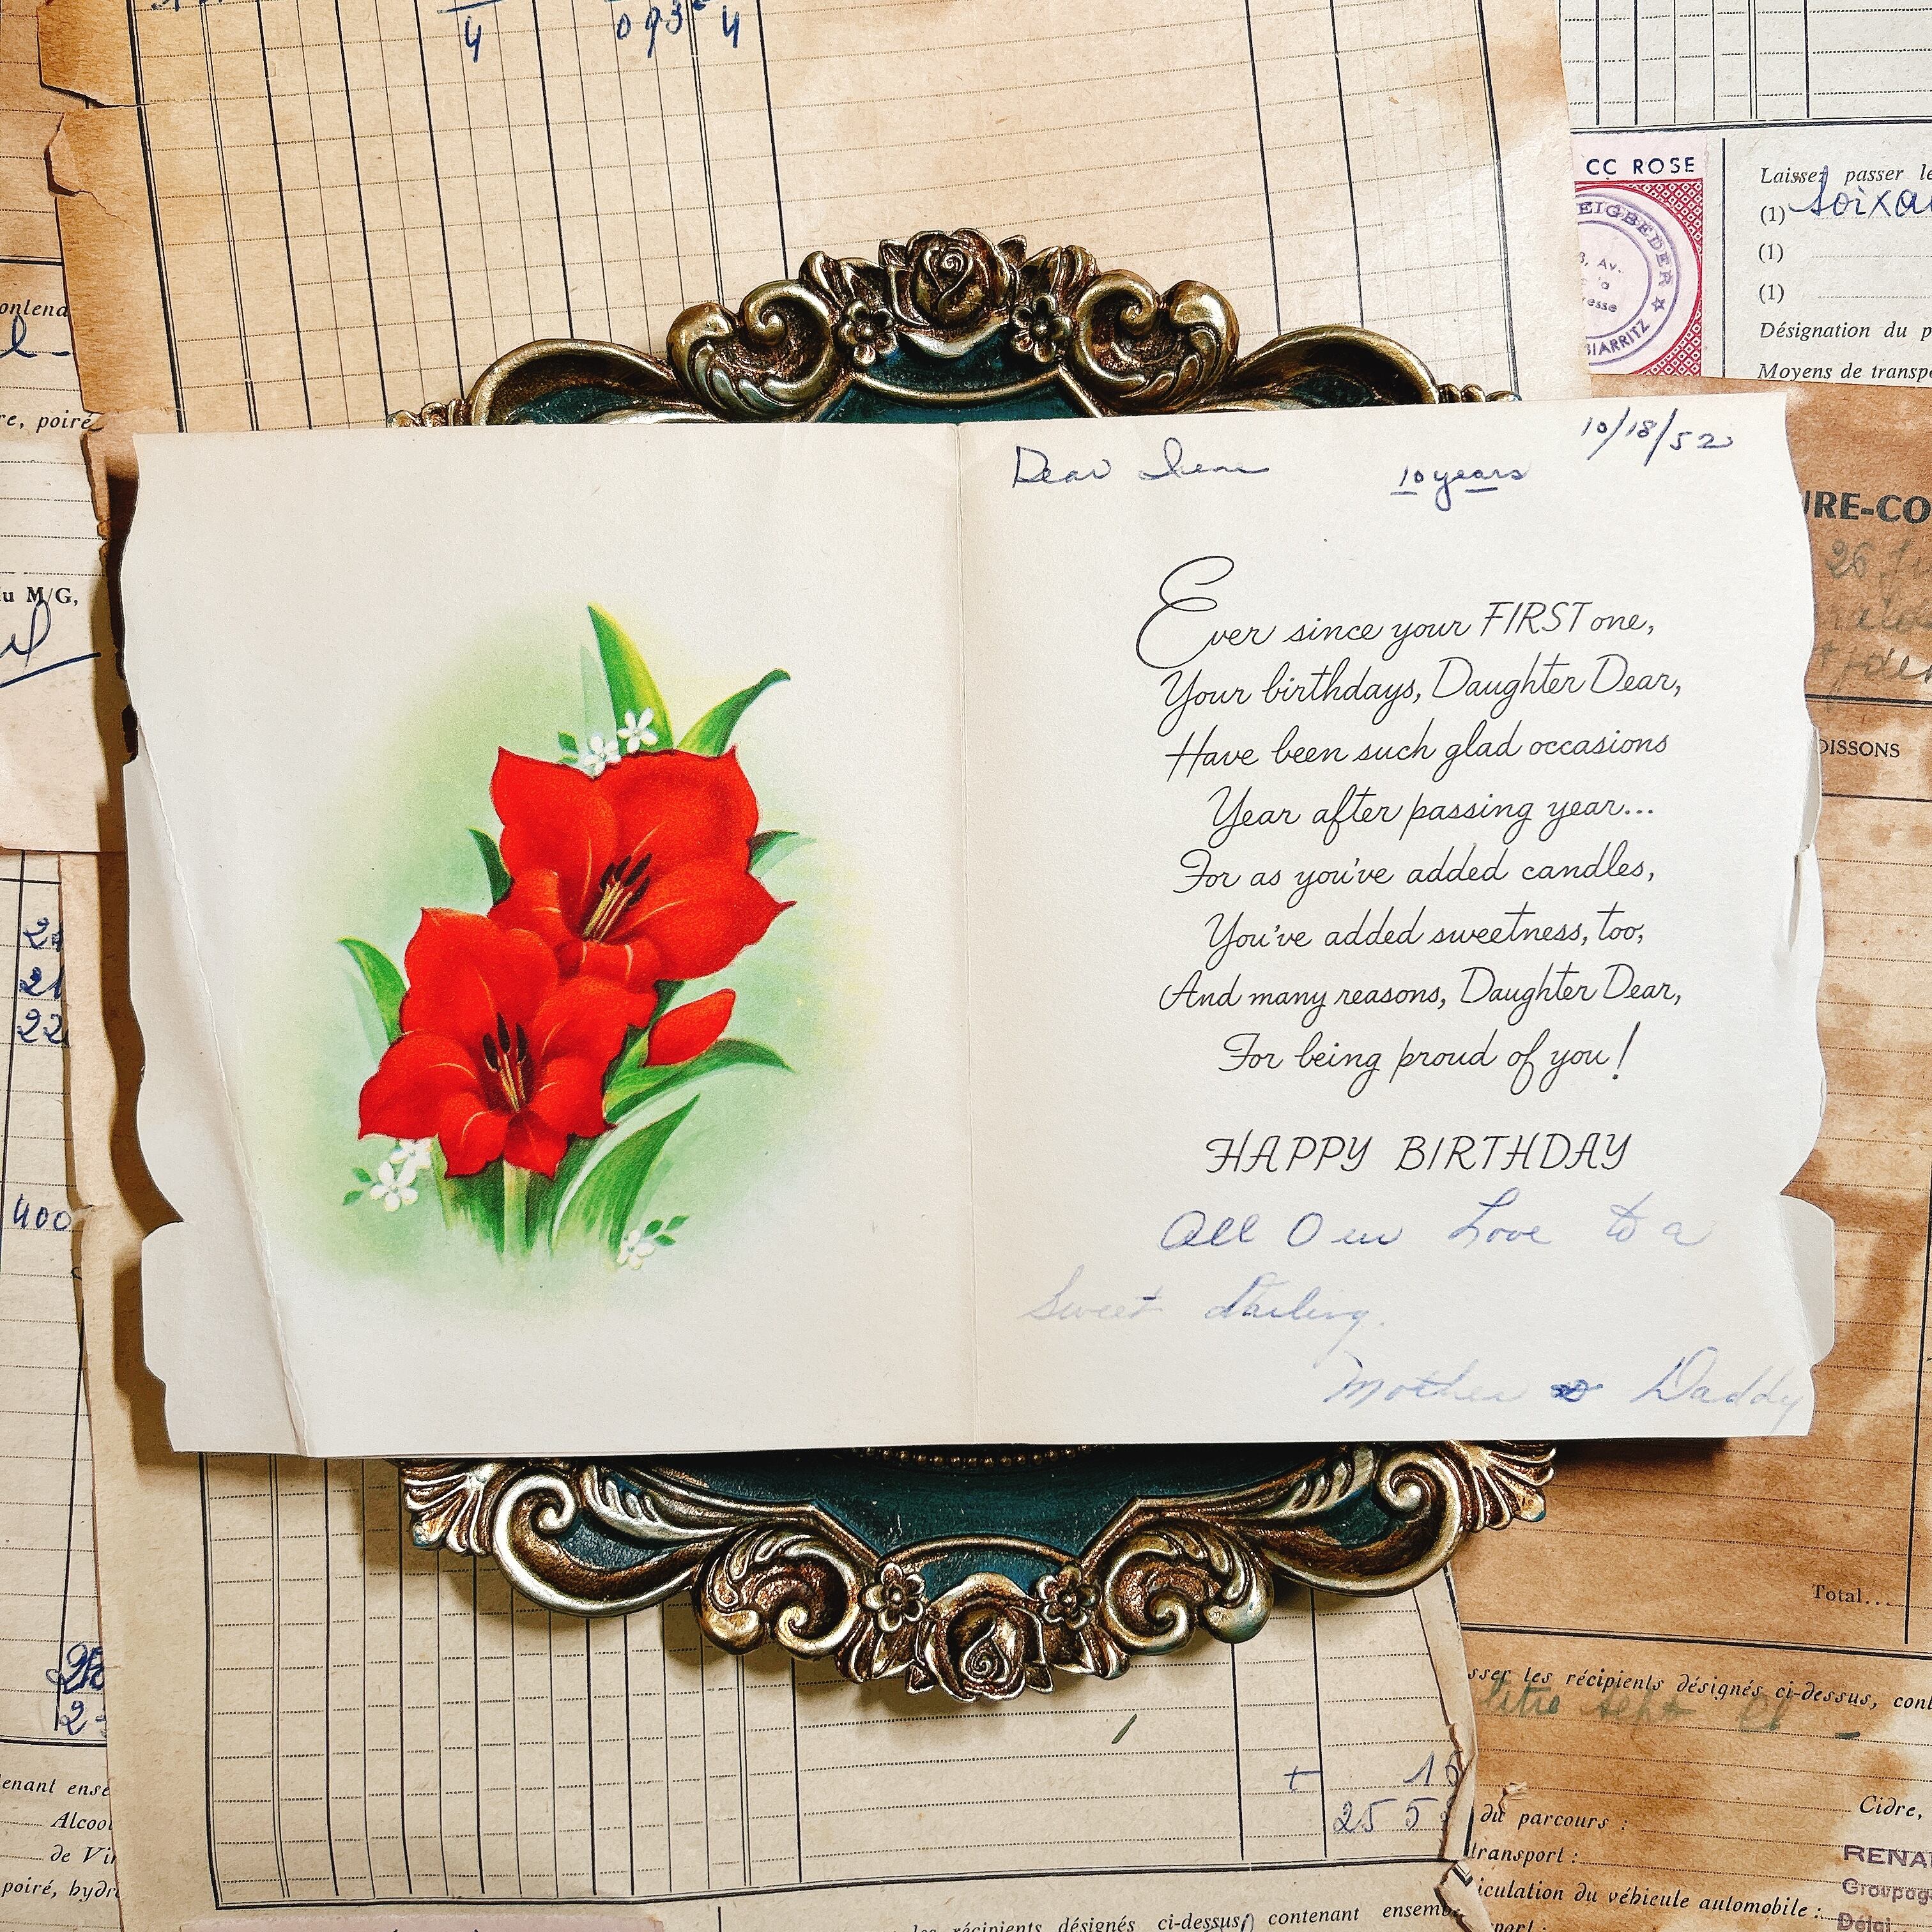 4
093 4
CC ROSE
EIGBEDER ★
3, Av.
resse
BIARRITZ
Laissez passer le
(1) soixa
(1)
(1)
Désignation du p
Moyens de transpo
ontena
re, poiré
du M/G,
Dear
10 years
10/18/52
Ever since your FIRST one,
Your birthdays, Daughter Dear,
Have been such glad occasions
Year after passing year...
For as you've added candles,
You've added sweetness, too,
And many reasons, Daughter Dear,
For being proud of you!
HAPPY BIRTHDAY
All Our Love to a
Sweet darling.
Mother & Daddy
URE-CO
26
OISSONS
21
22
400
Total...
sser les récipients désignés ci-dessus, cont
litre sept
+ 16
255
du parcours :
Cidre,
transport :
RENA
iculation du véhicule automobile :
Groupag
Délai
sport :
enant ense
Alcool
de Vi
poiré, hydr
les récipients désignés ci-dessus, contenant ensemb